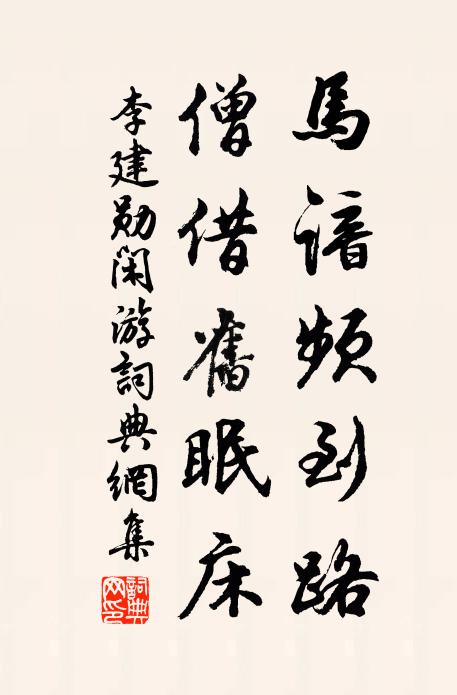 馬諳頻到路
僧借舊眠床
李建勛閑游詞典網集
詞典网印